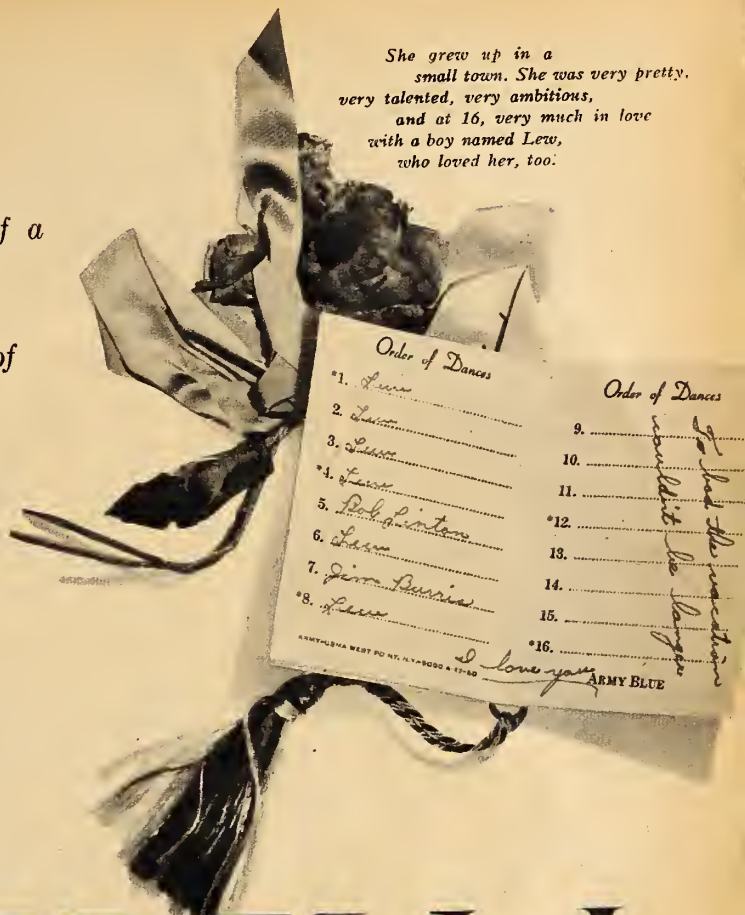 She grew up in a
small town. She was very pretty,
very talented, very ambitious,
and at 16, very much in love
with a boy named Lew,
who loved her, too.
f a
of
Order of Dances
*1. Lew
2. Lew
3. Lew
*4. Lew
5. Bob Linton
6. Lew
7. Jim Burris
*8. Lew
ARMY-USMA WEST POINT, N.Y.
I love you
Order of Dances
9.
10.
11.
*12.
13.
14.
15.
*16.
ARMY BLUE
To bad the vacation
couldn't be longer